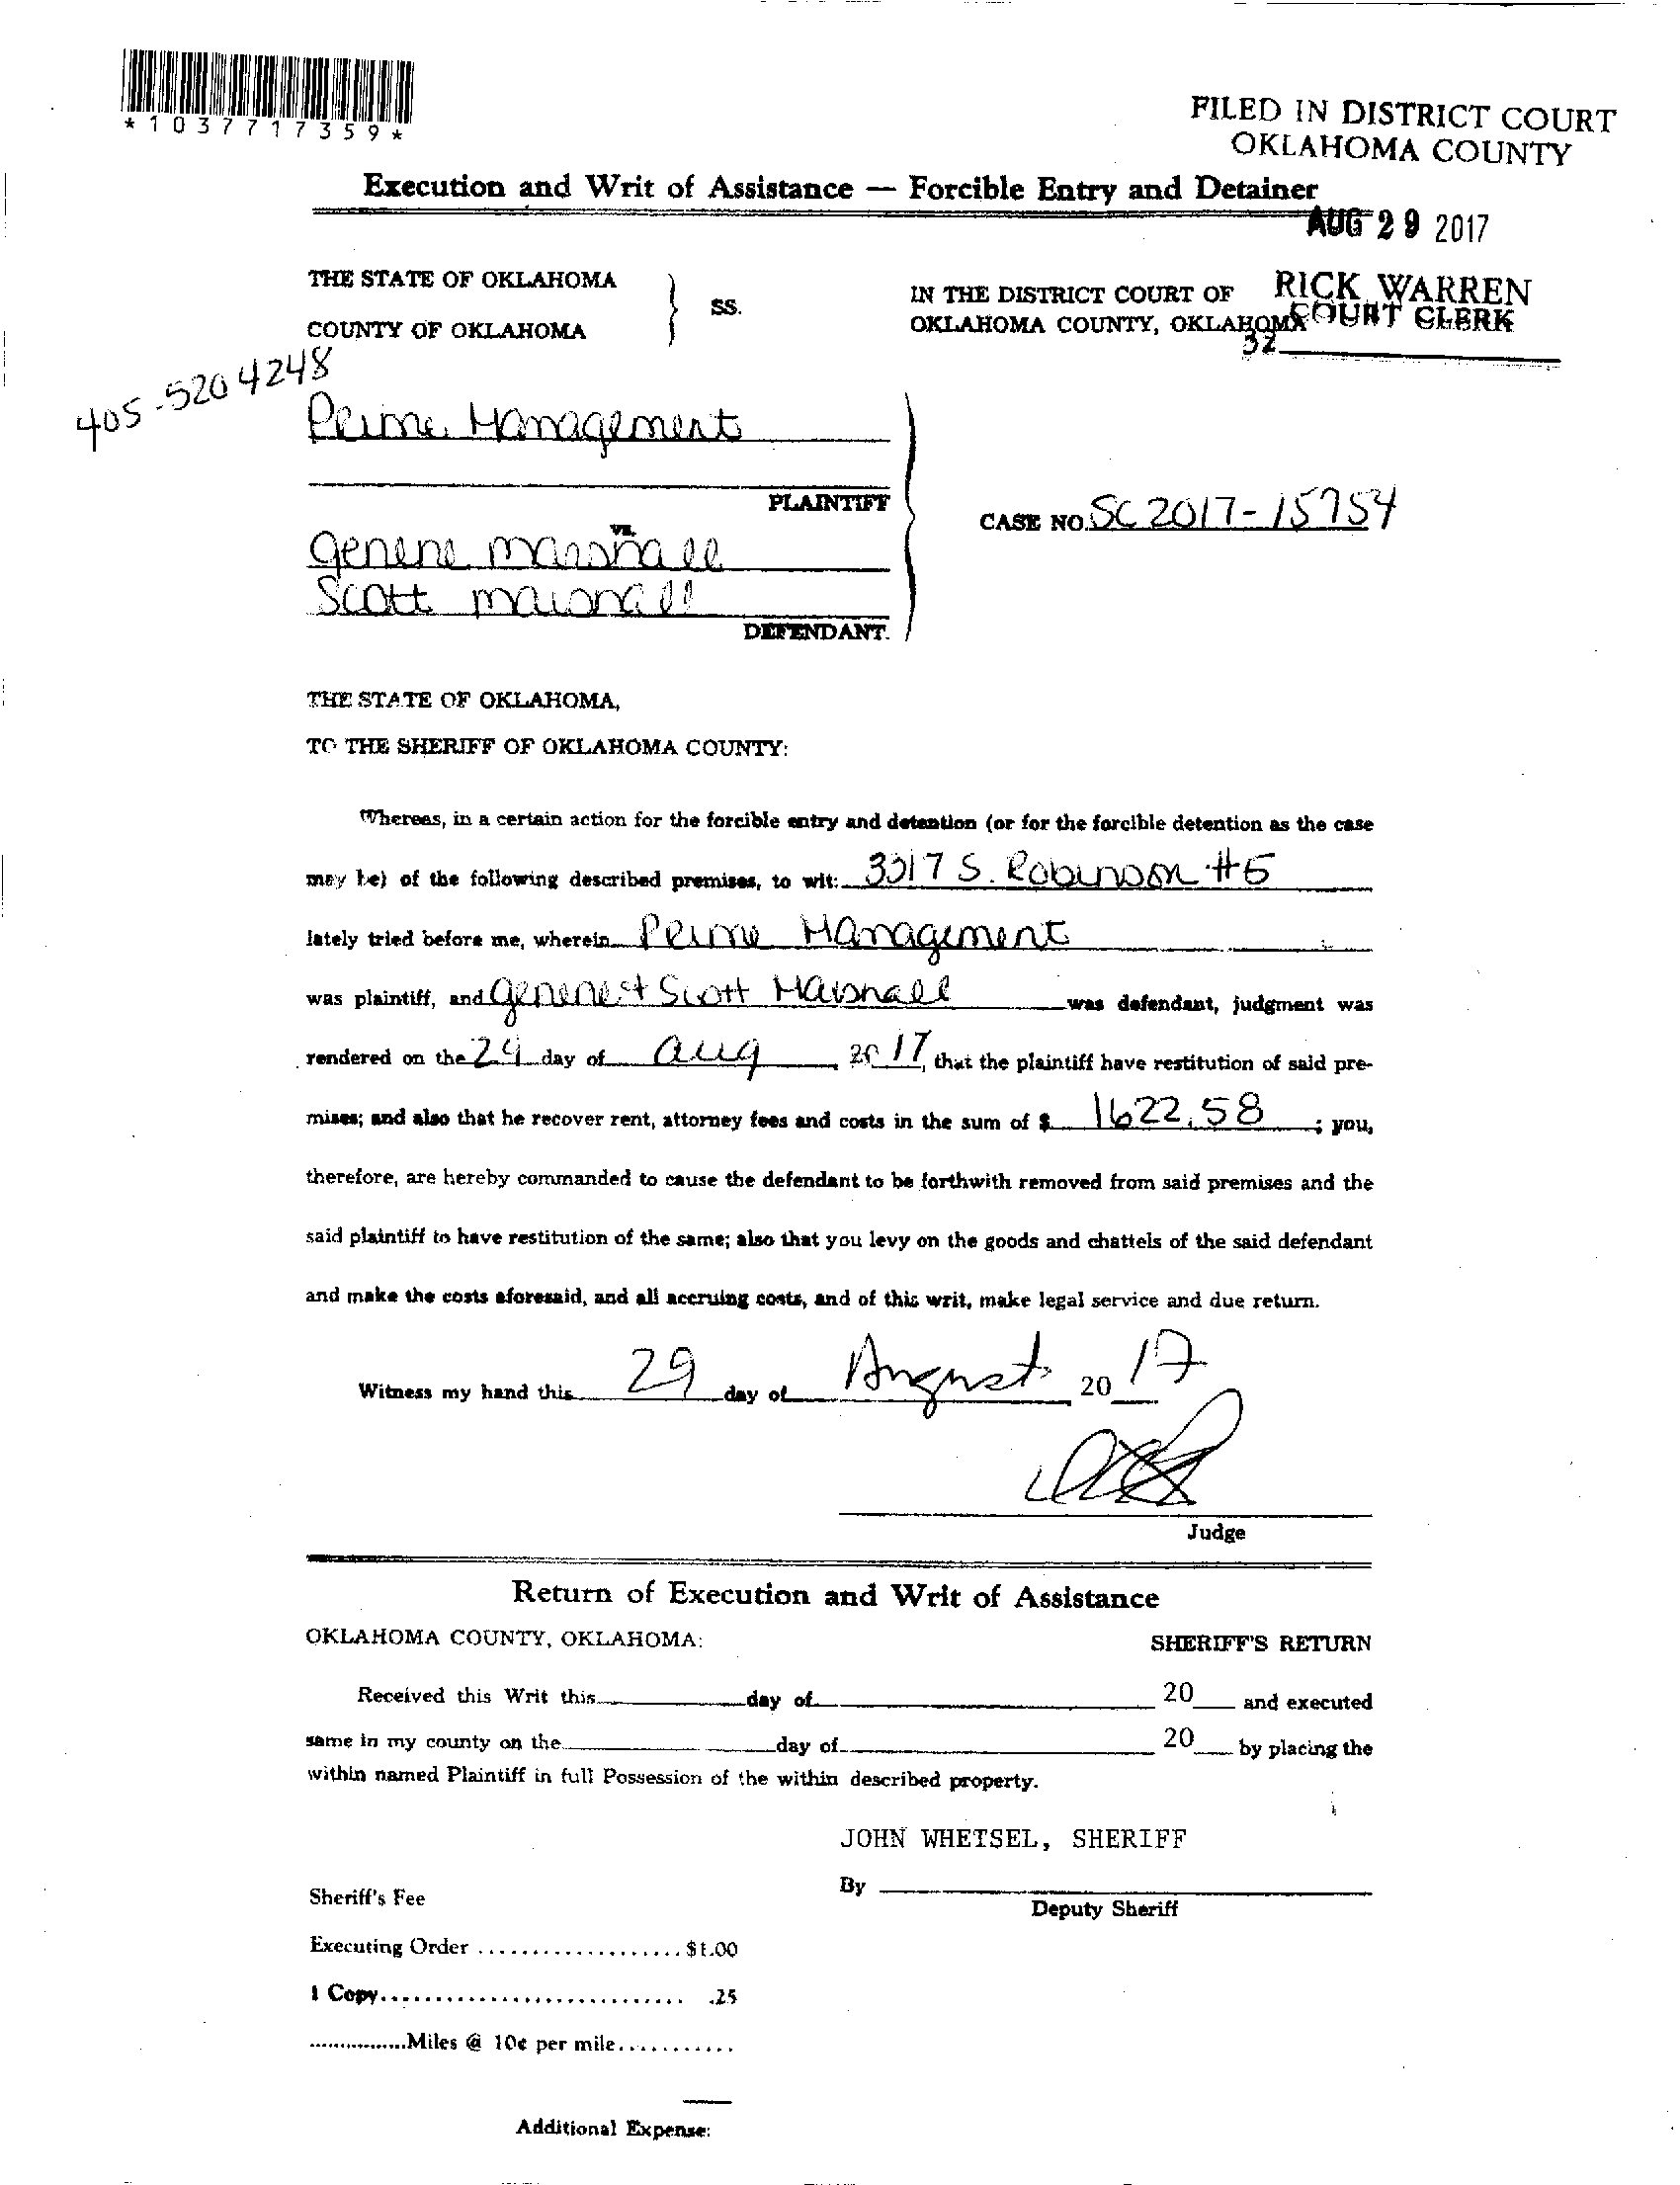 *1037717359*
FILED IN DISTRICT COURT
OKLAHOMA COUNTY
Execution and Writ of Assistance — Forcible Entry and Detainer
AUG 29 2017
THE STATE OF OKLAHOMA
COUNTY OF OKLAHOMA
SS.
IN THE DISTRICT COURT OF
OKLAHOMA COUNTY, OKLAHOMA
RICK WARREN
COURT CLERK
32
405-520 4248
Prime Management
PLAINTIFF
vs.
Genene Marshall
Scott Marshall
DEFENDANT.
CASE NO. SC 2017-15754
THE STATE OF OKLAHOMA,
TO THE SHERIFF OF OKLAHOMA COUNTY:
Whereas, in a certain action for the forcible entry and detention (or for the forcible detention as the case
may be) of the following described premises, to wit: 3317 S. Robinson #5
lately tried before me, wherein Prime Management
was plaintiff, and Genene & Scott Marshall was defendant, judgment was
rendered on the 29 day of Aug 20 17, that the plaintiff have restitution of said pre-
mises; and also that he recover rent, attorney fees and costs in the sum of $ 1622.58 ; you,
therefore, are hereby commanded to cause the defendant to be forthwith removed from said premises and the
said plaintiff to have restitution of the same; also that you levy on the goods and chattels of the said defendant
and make the costs aforesaid, and all accruing costs, and of this writ, make legal service and due return.
Witness my hand this 29 day of August 20 17
Judge
Return of Execution and Writ of Assistance
OKLAHOMA COUNTY, OKLAHOMA:
SHERIFF'S RETURN
Received this Writ this day of 20 and executed
same in my county on the day of 20 by placing the
within named Plaintiff in full Possession of the within described property.
JOHN WHETSEL, SHERIFF
By
Deputy Sheriff
Sheriff's Fee
Executing Order .................... $1.00
1 Copy............................. .25
................Miles @ 10¢ per mile...........
Additional Expense: